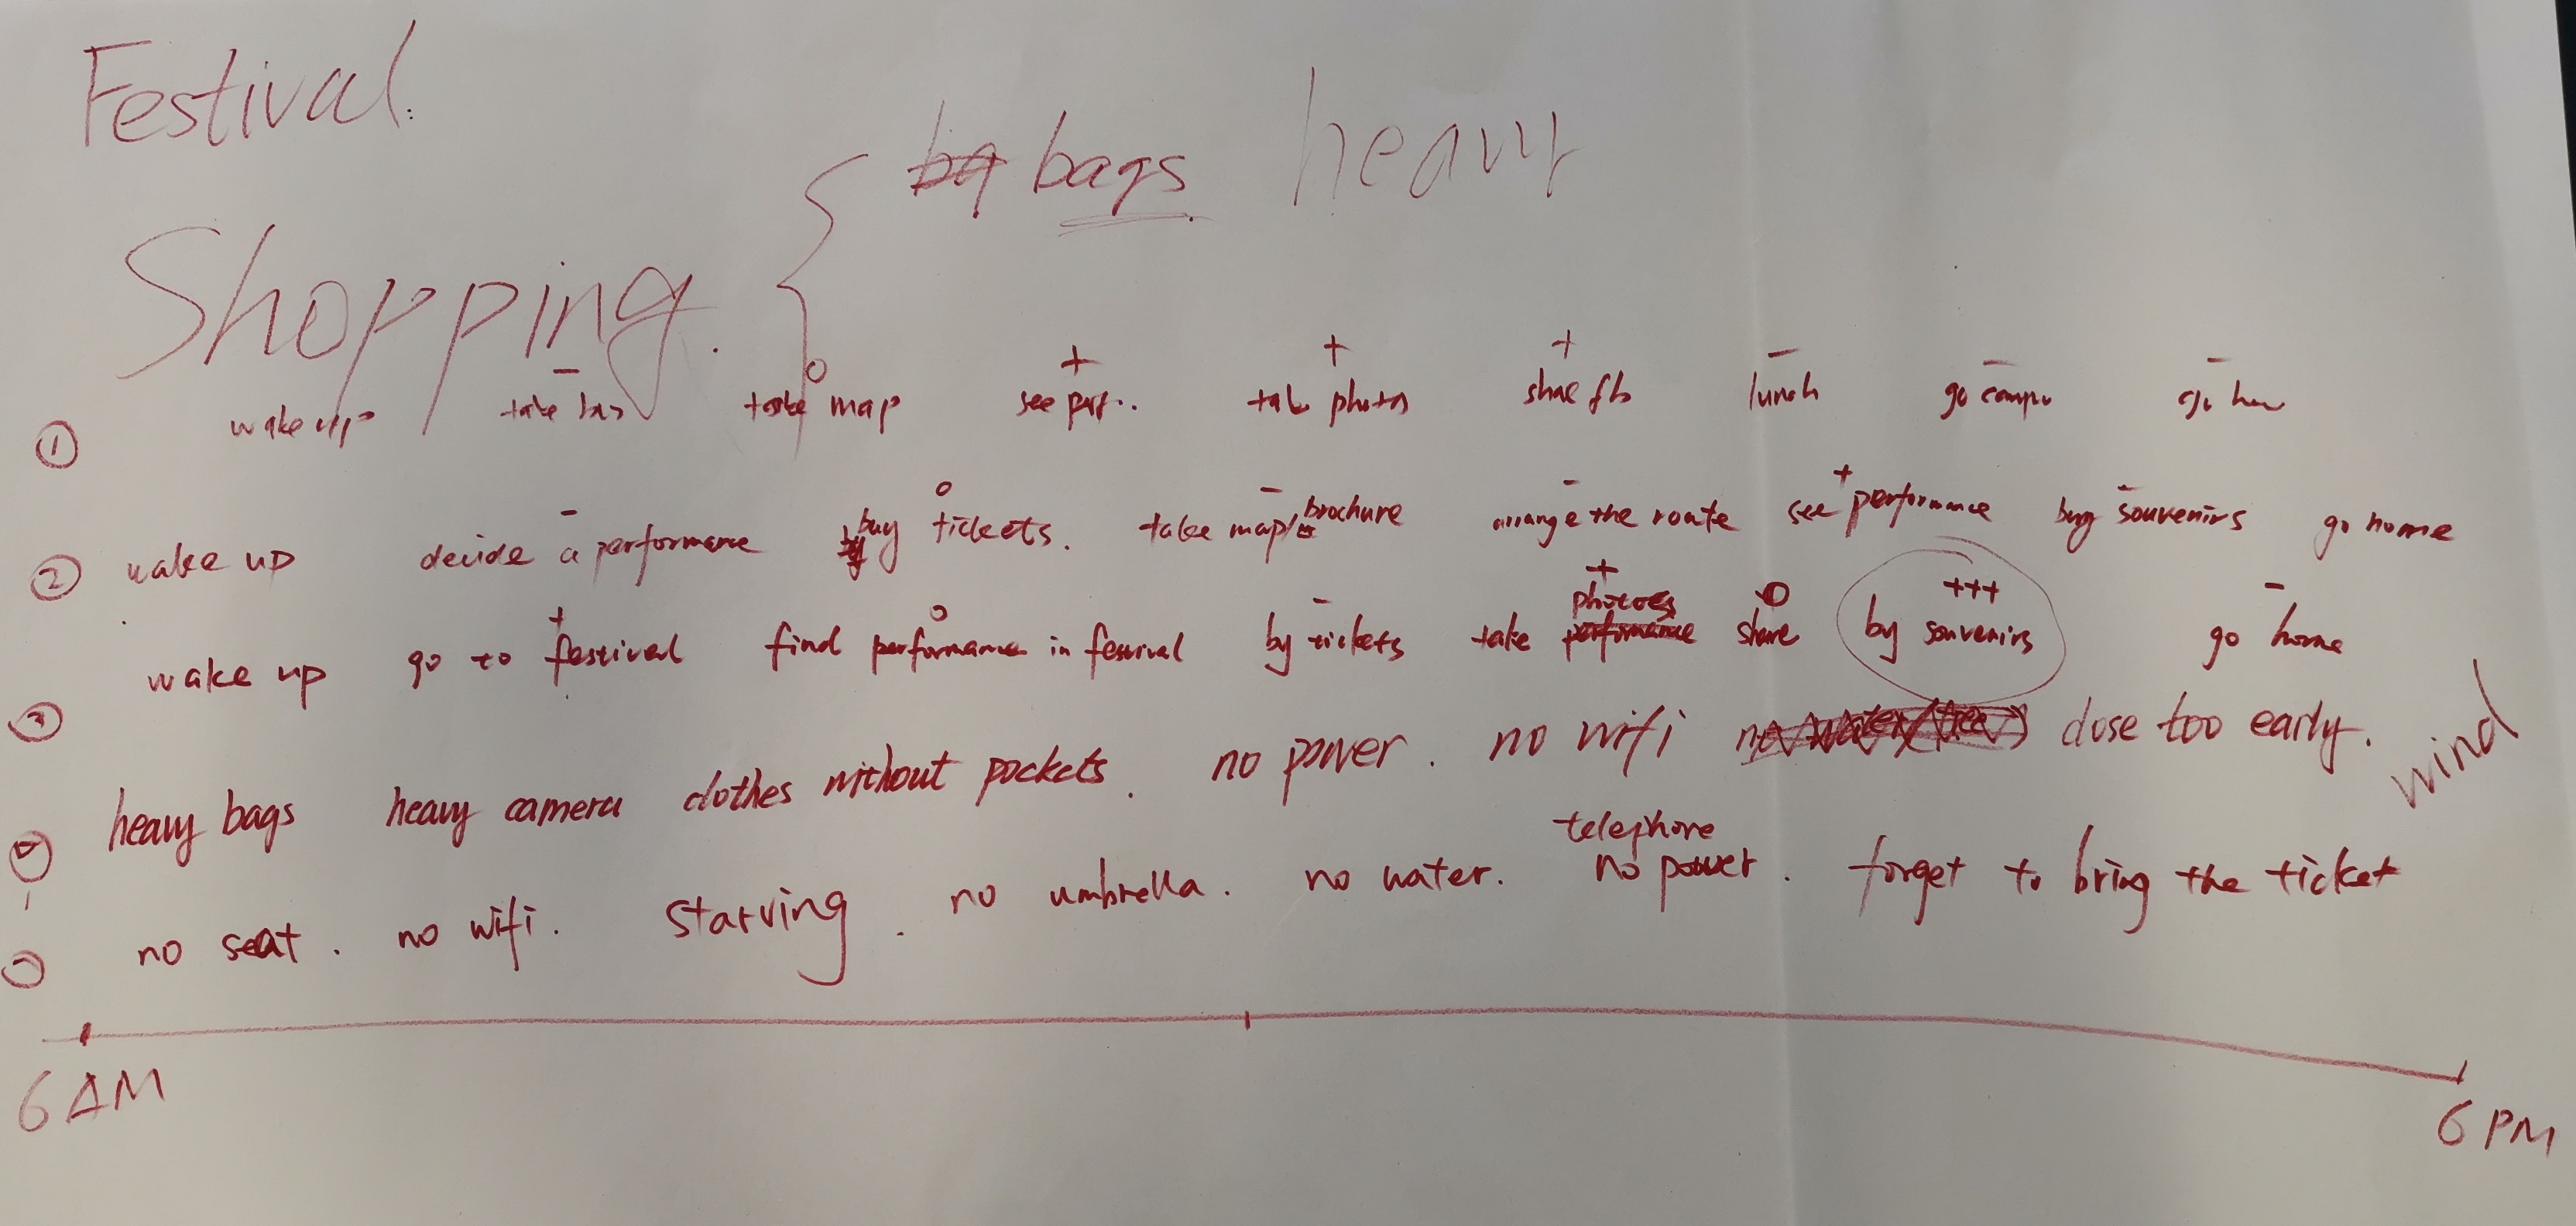 Festival.
bags heavy
Shopping.
- o + + + - - -
① wake up take bus take map see perf.. take photos share fb lunch go campus go home
- o - - + -
② wake up decide a performance buy tickets. take map/brochure arrange the route see performance buy souvenirs go home
+ o - + o +++ -
photoes
③ wake up go to festival find performance in festival by tickets take performance share by souvenirs go home
heavy bags heavy camera clothes without pockets. no power. no wifi close too early. wind
telephone
no seat. no wifi. starving. no umbrella. no water. no power. forget to bring the ticket
6 AM 6 PM